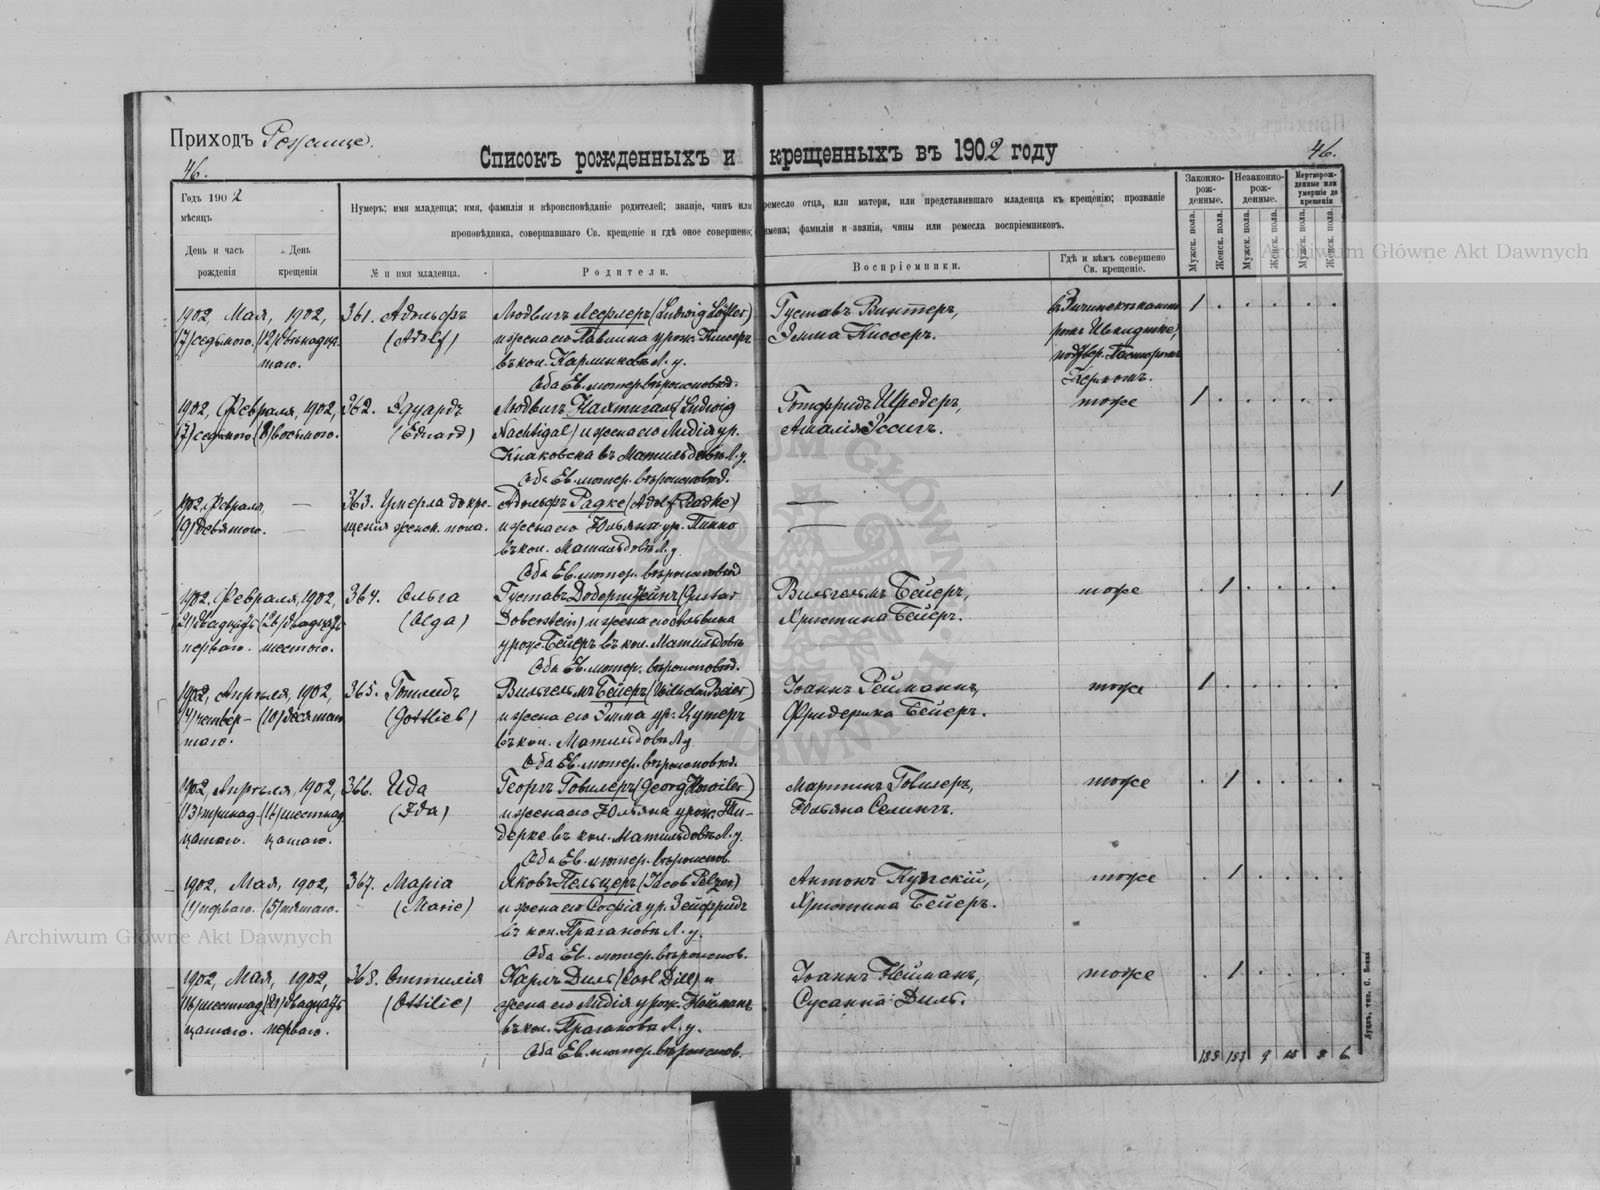 Приходъ Рожище.
Списокъ рожденныхъ и крещенныхъ въ 1902 году
46.
46.
Годъ 1902
мѣсяцъ
День и часъ рожденія
День крещенія
Нумеръ; имя младенца; имя, фамилія и вѣроисповѣданіе родителей; званіе, чинъ или ремесло отца, или матери, или представившаго младенца къ крещенію; прозваніе
проповѣдника, совершавшаго Св. крещеніе и гдѣ оное совершено; имена; фамиліи и званія, чины или ремесла воспріемниковъ.
№ и имя младенца.
Родители.
Воспріемники.
Гдѣ и кѣмъ совершено Св. крещеніе.
Законно-рож-денные.
Незаконно-рож-денные.
Мертворож-денные или умершіе до крещенія
Мужск. пола.
Женск. пола.
Мужск. пола.
Женск. пола.
Мужск. пола.
Женск. пола.
1902, Мая, 1902, 361. Адольфъ Людвигъ Лефлеръ (Ludwig Löfler) Густавъ Винтеръ, 1
(7) седьмого. (12) двѣнадца- (Adolf) и жена его Павлина урож. Киссеръ Эмма Киссеръ.
таго. въ кол. Л. у. подтвер. Пасторомъ
Оба Ев. лютер. вѣроисповѣд. Керномъ.
1902, Февраля, 1902, 362. Эдуардъ Людвигъ Нахтигалъ (Ludwig Готфридъ Шредеръ, тоже 1
(7) седьмого (8) восьмого. (Eduard) Nachtigal) и жена его Лидія ур. Амалія Эссигъ.
въ Матильдовъ Л. у.
Оба Ев. лютер. вѣроисповѣд.
1902, Февраля, — 363. Умерла до кре- Адольфъ Радке (Adolf Radke) — 1
(9) девятого. — щенія женск. пола. и жена его Юльяна ур. —
въ кол. Матильдовъ Л. у.
Оба Ев. лютер. вѣроисповѣд
1902, Февраля, 1902, 364. Ольга Густавъ Доберштейнъ (Gustav Вильгельмъ Бейеръ, тоже 1
(21) двадцать (26) двадцать (Olga) Doberstein) и жена его Христина Бейеръ.
перваго. шестого. урож. Бейеръ въ кол. Матильдовъ
Оба Ев. лютер. вѣроисповѣд.
1902, Апрѣля, 1902, 365. Готлибъ Вильгельмъ Бейеръ (Wilhelm Beier) Іоаннъ Рейманнъ, тоже 1
(4) четвер- (10) десятаго (Gottlieb) и жена его Эмма ур. Цутеръ Фридерика Бейеръ.
таго. въ кол. Матильдовъ Л. у.
Оба Ев. лютер. вѣроисповѣд.
1902, Апрѣля, 1902, 366. Ида Георгъ Говилеръ (Georg Мартинъ Говилеръ, тоже 1
(13) тринад- (16) шестнад- (Ida) и жена его Юльяна урож. Юльяна Селингъ.
цатаго. цатаго. въ кол. Матильдовъ Л. у.
Оба Ев. лютер. вѣроиспов.
1902, Мая, 1902, 367. Марія Яковъ Пельцеръ (Jacob Pelzer) Антонъ Купскій, тоже 1
(1) перваго. (5) пятаго. (Marie) и жена его Софія ур. Зейфридъ Христина Бейеръ.
въ кол. Прагановъ Л. у.
Оба Ев. лютер. вѣроиспов.
1902, Мая, 1902, 368. Оттилія Карлъ Диль (Carl Dill) и Іоаннъ Нейманъ, тоже 1
(16) шестнад- (21) двадцать (Ottilie) жена его Лидія урож. Нейманъ Сусанна Диль.
цатаго. перваго. въ кол. Праганова Л. у.
Оба Ев. лютер. вѣроиспов.
9 6
Луцкъ, тип. С. Бокка
Archiwum Główne Akt Dawnych
Archiwum Główne Akt Dawnych